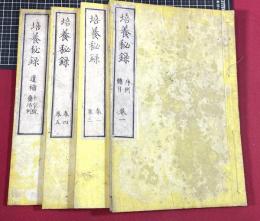 培養秘録
序例
總目
卷一
培養秘録
卷二
卷三
培養秘録
卷四
卷五
培養秘録
遺補